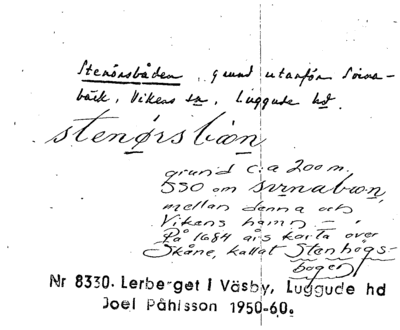 Stenörsbåden, grund utanför Svina-
bäck, Vikens sn, Luggude hd.
stenørsbæn
grund c:a 200 m.
SSO om svinabæn,
mellan denna och
Vikens hamn – .
På 1684 års karta över
Skåne, kallat Stenhögs-
bogen
Nr 8330. Lerberget i Väsby, Luggude hd
Joel Påhlsson 1950-60.